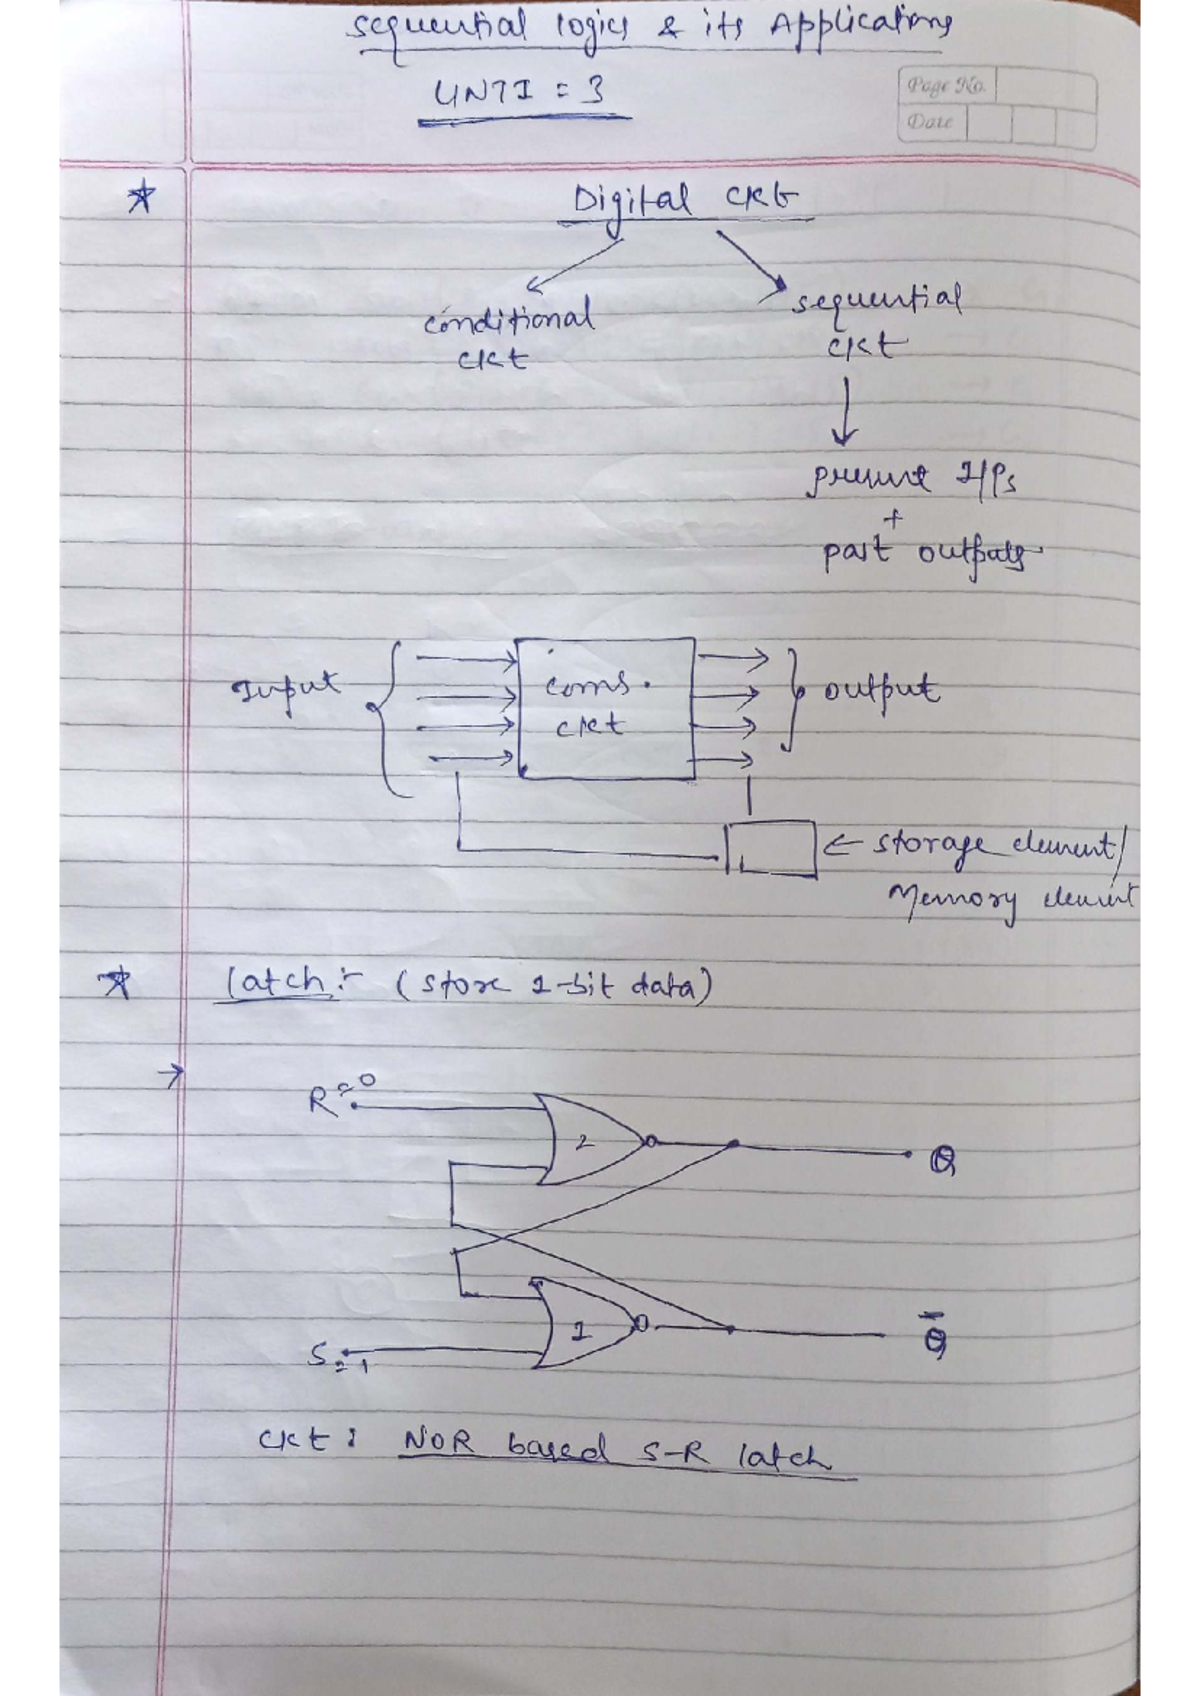 sequential logics & its Applications
UNTI = 3
Page No.
Date
Digital ckt
conditional
ckt
sequential
ckt
present I/Ps
+
past outputs
Input
comb.
ckt
output
← storage element/
Memory element
latch :- (store 1-bit data)
→
R = 0
2
Q
1
Q̅
S = 1
ckt : NOR based S-R latch